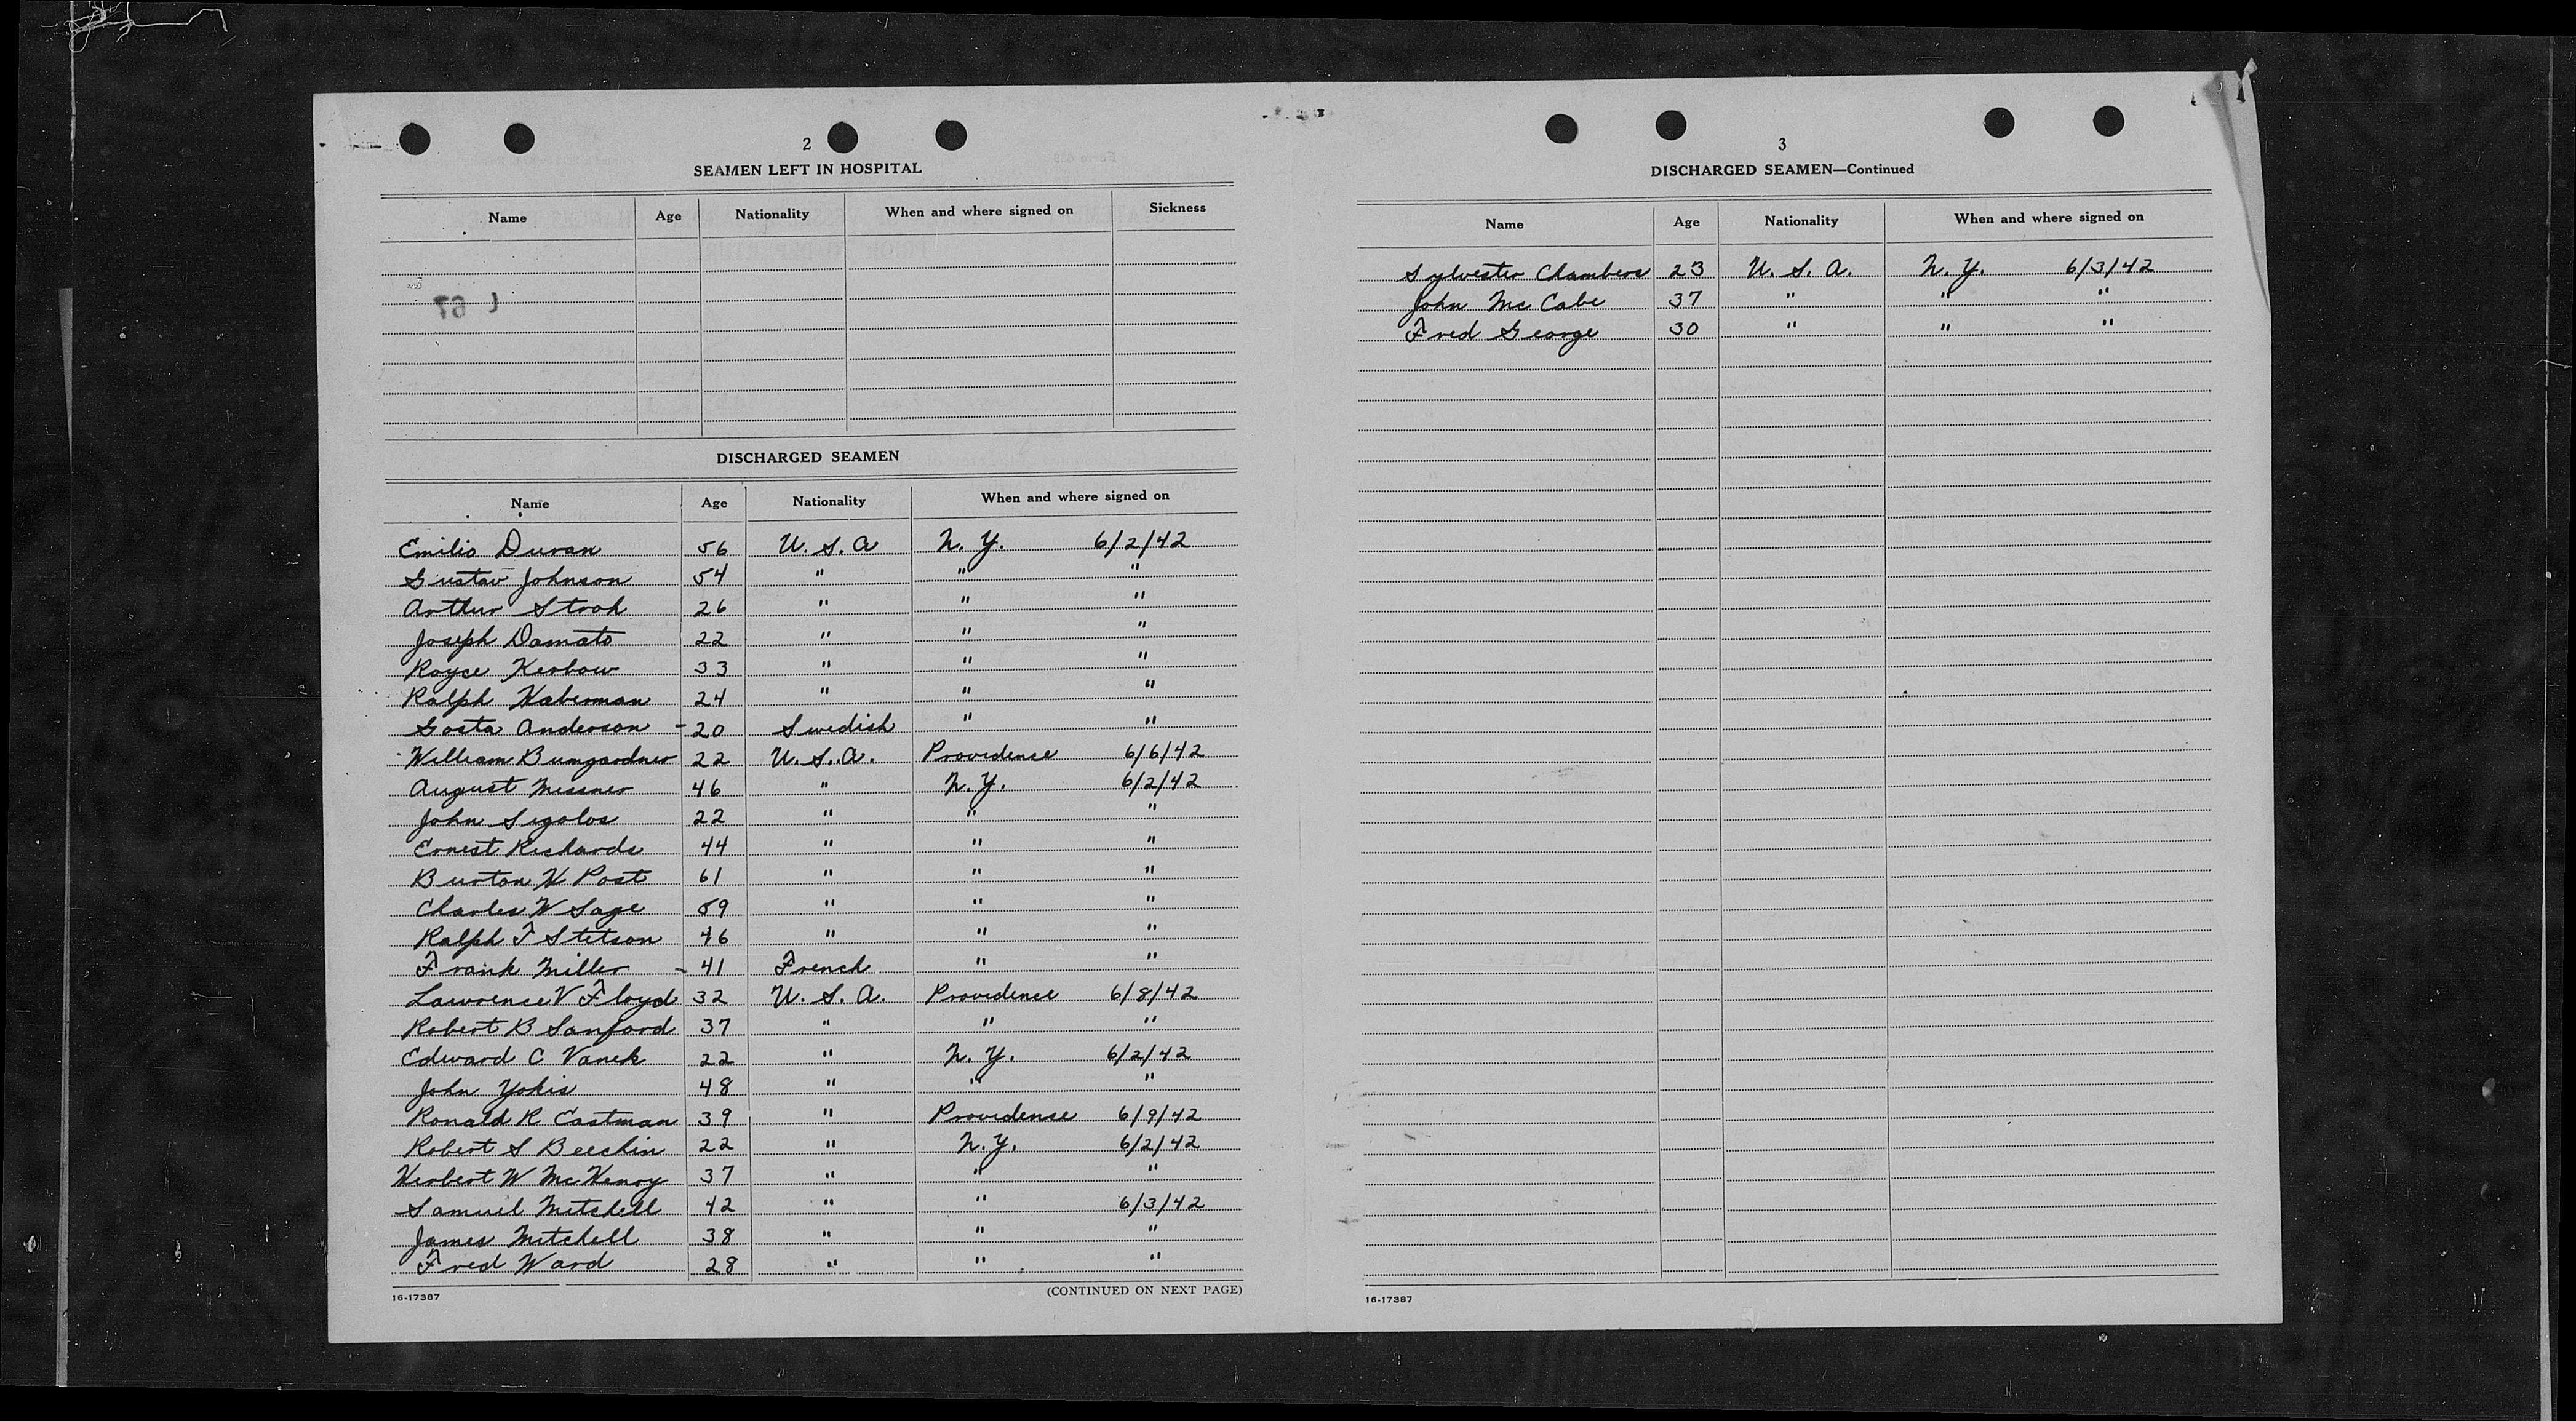 2
SEAMEN LEFT IN HOSPITAL
Name Age Nationality When and where signed on Sickness
DISCHARGED SEAMEN
Name Age Nationality When and where signed on
Emilio Duran 56 U.S.A N.Y. 6/2/42
Gustav Johnson 54 " " "
Arthur Stroh 26 " " "
Joseph Damato 22 " " "
Royce Kerbow 33 " " "
Ralph Haberman 24 " " "
Gosta Anderson - 20 Swedish " "
William Bumgardner 22 U.S.A. Providense 6/6/42
August Messner 46 " N.Y. 6/2/42
John Sigalos 22 " " "
Ernest Richards 44 " " "
Burton H Post 61 " " "
Charles W Sage 59 " " "
Ralph F Stetson 46 " " "
Frank Miller - 41 French " "
Lawrence V Floyd 32 U.S.A. Providence 6/8/42
Robert B Sanford 37 " " "
Edward C Vanek 22 " N.Y. 6/2/42
John Yokis 48 " " "
Ronald R Eastman 39 " Providense 6/9/42
Robert S Beechin 22 " N.Y. 6/2/42
Herbert W McHenry 37 " " "
Samuel Mitchell 42 " " 6/3/42
James Mitchell 38 " " "
Fred Ward 28 " " "
16-17387 (CONTINUED ON NEXT PAGE)
3
DISCHARGED SEAMEN—Continued
Name Age Nationality When and where signed on
Sylvester Chambers 23 U.S.A. N.Y. 6/3/42
John McCabe 37 " " "
Fred George 30 " " "
16-17387